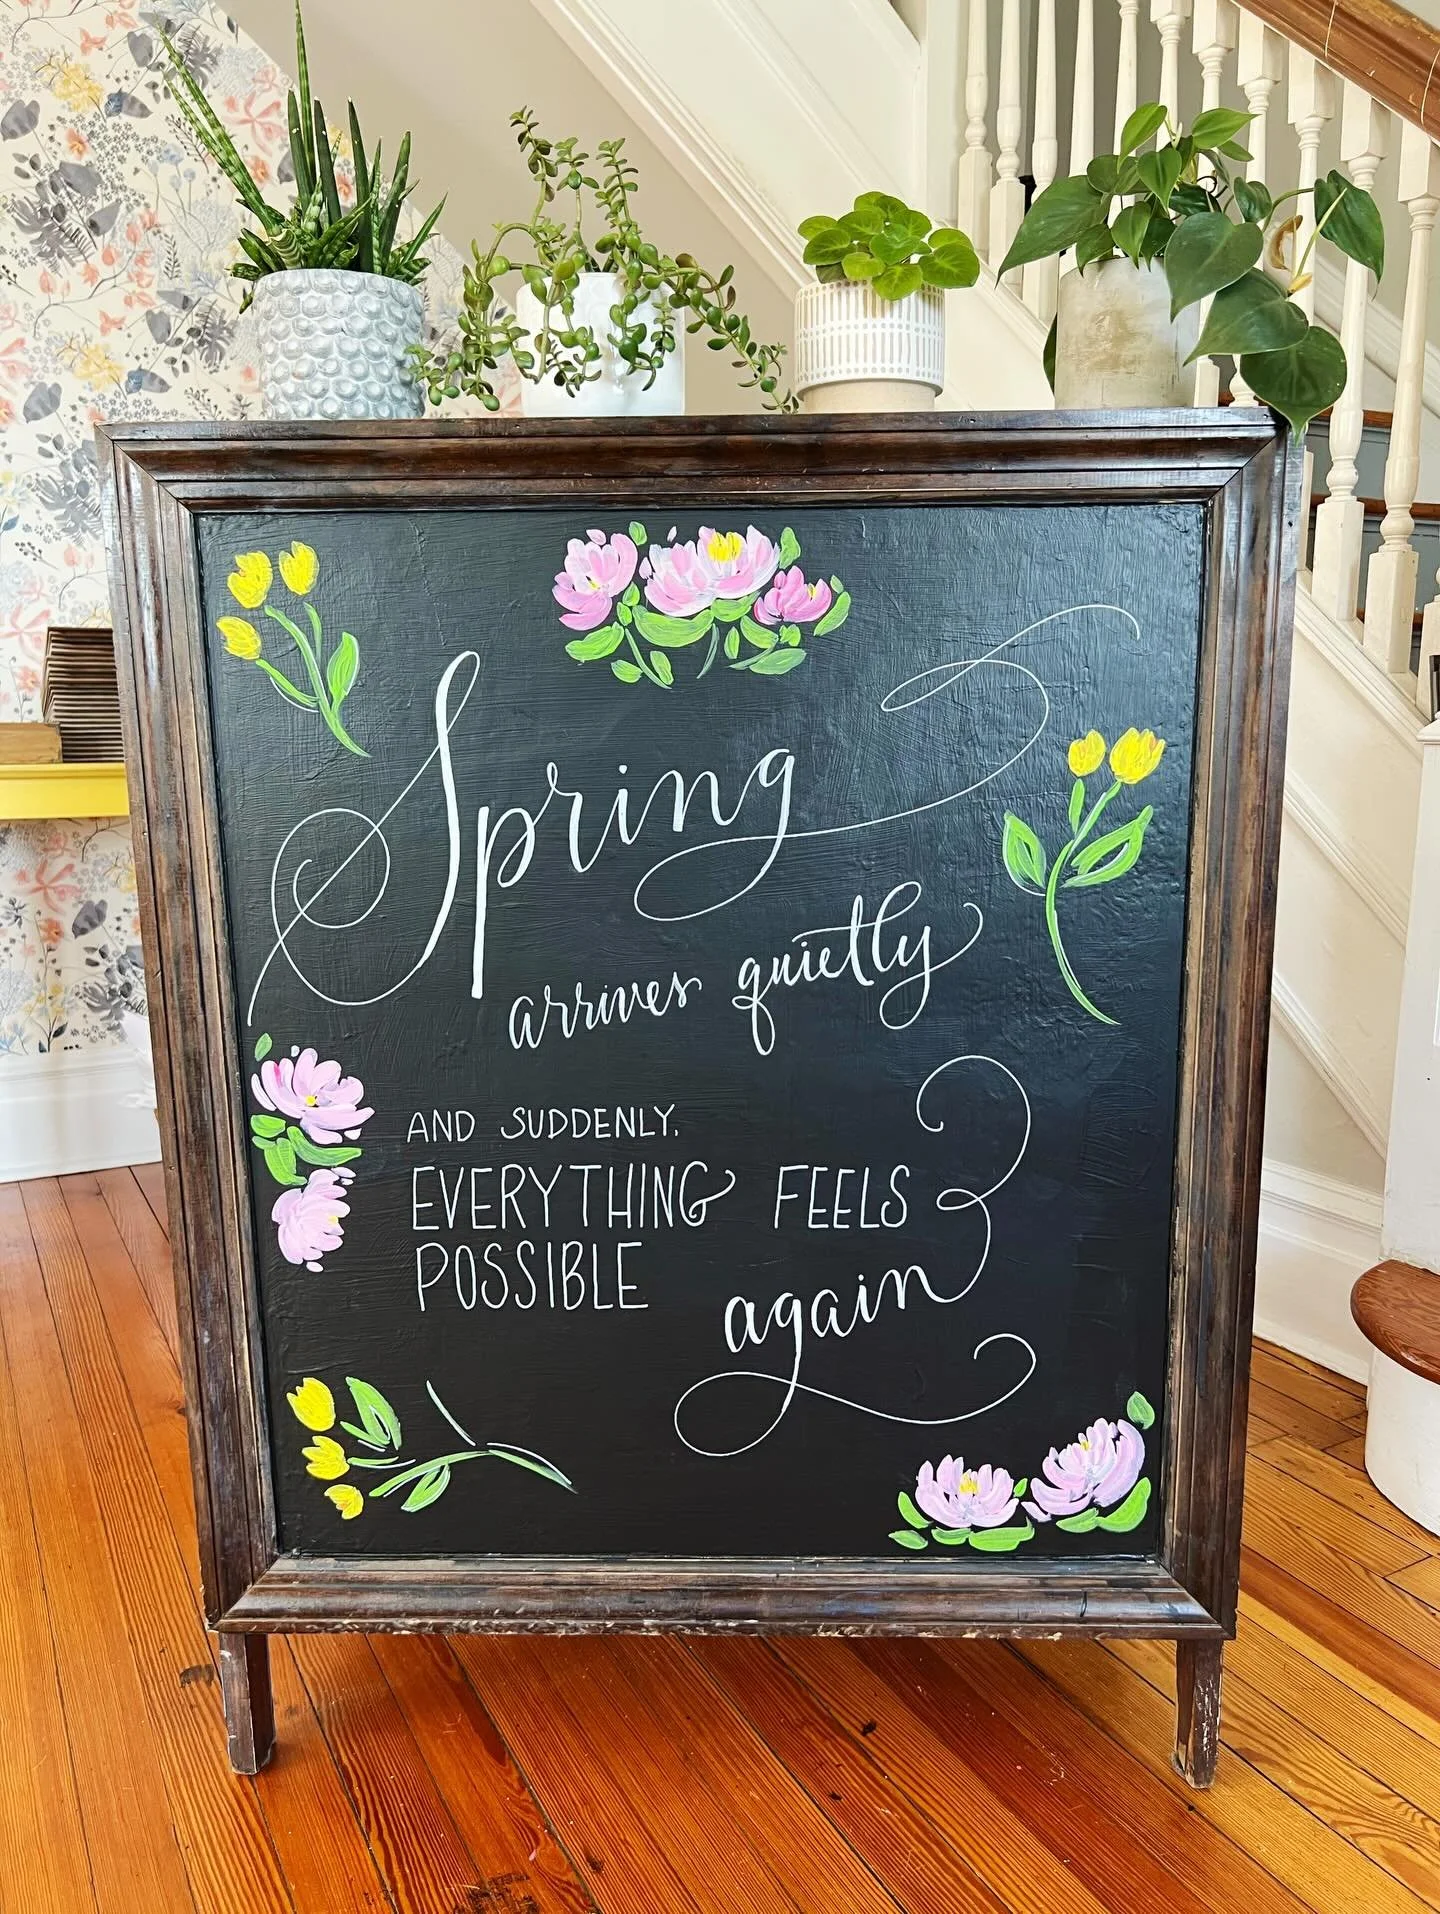 Spring
arrives quietly
AND SUDDENLY,
EVERYTHING FEELS
POSSIBLE
again